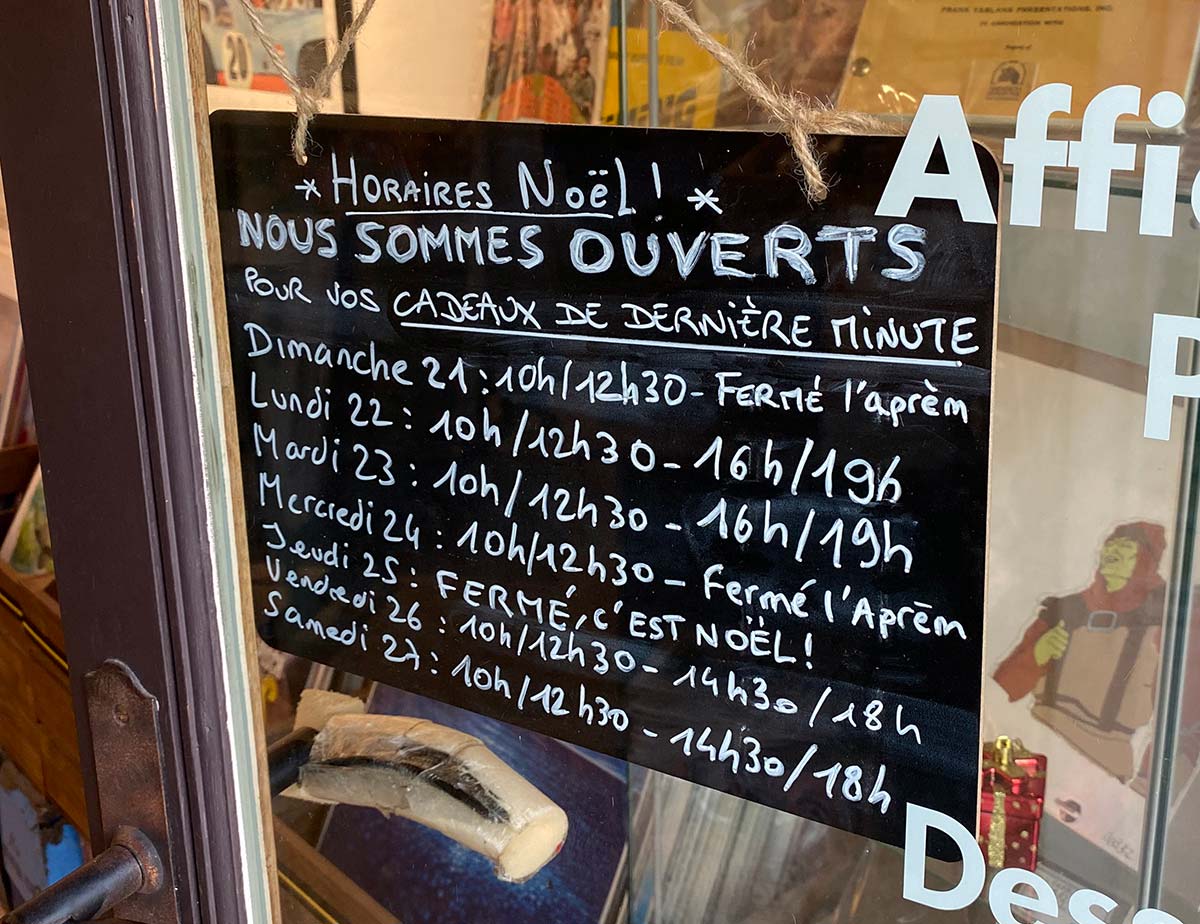 FRANK YABLANS PRESENTATIONS, INC.
IN ASSOCIATION WITH
20
* HORAIRES NOËL! *
NOUS SOMMES OUVERTS
POUR VOS CADEAUX DE DERNIÈRE MINUTE
Dimanche 21 : 10h/12h30 - FERMÉ l'aprèm
Lundi 22 : 10h/12h30 - 16h/19h
Mardi 23 : 10h/12h30 - 16h/19h
Mercredi 24 : 10h/12h30 - Fermé l'Aprèm
Jeudi 25 : FERMÉ, C'EST NOËL!
Vendredi 26 : 10h/12h30 - 14h30/18h
Samedi 27 : 10h/12h30 - 14h30/18h
Affi
P
D
Des